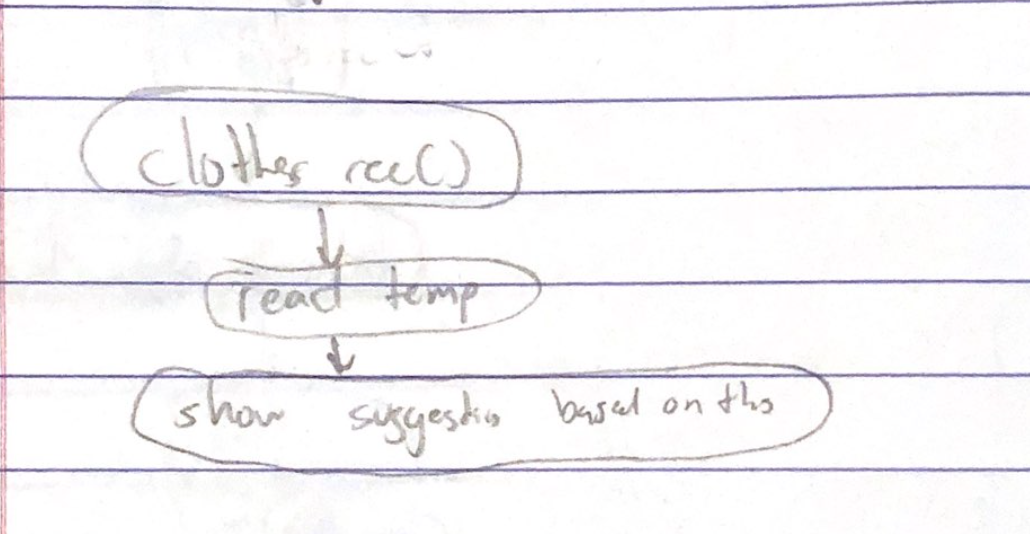 clothes rec()
read temp
show suggestion based on this